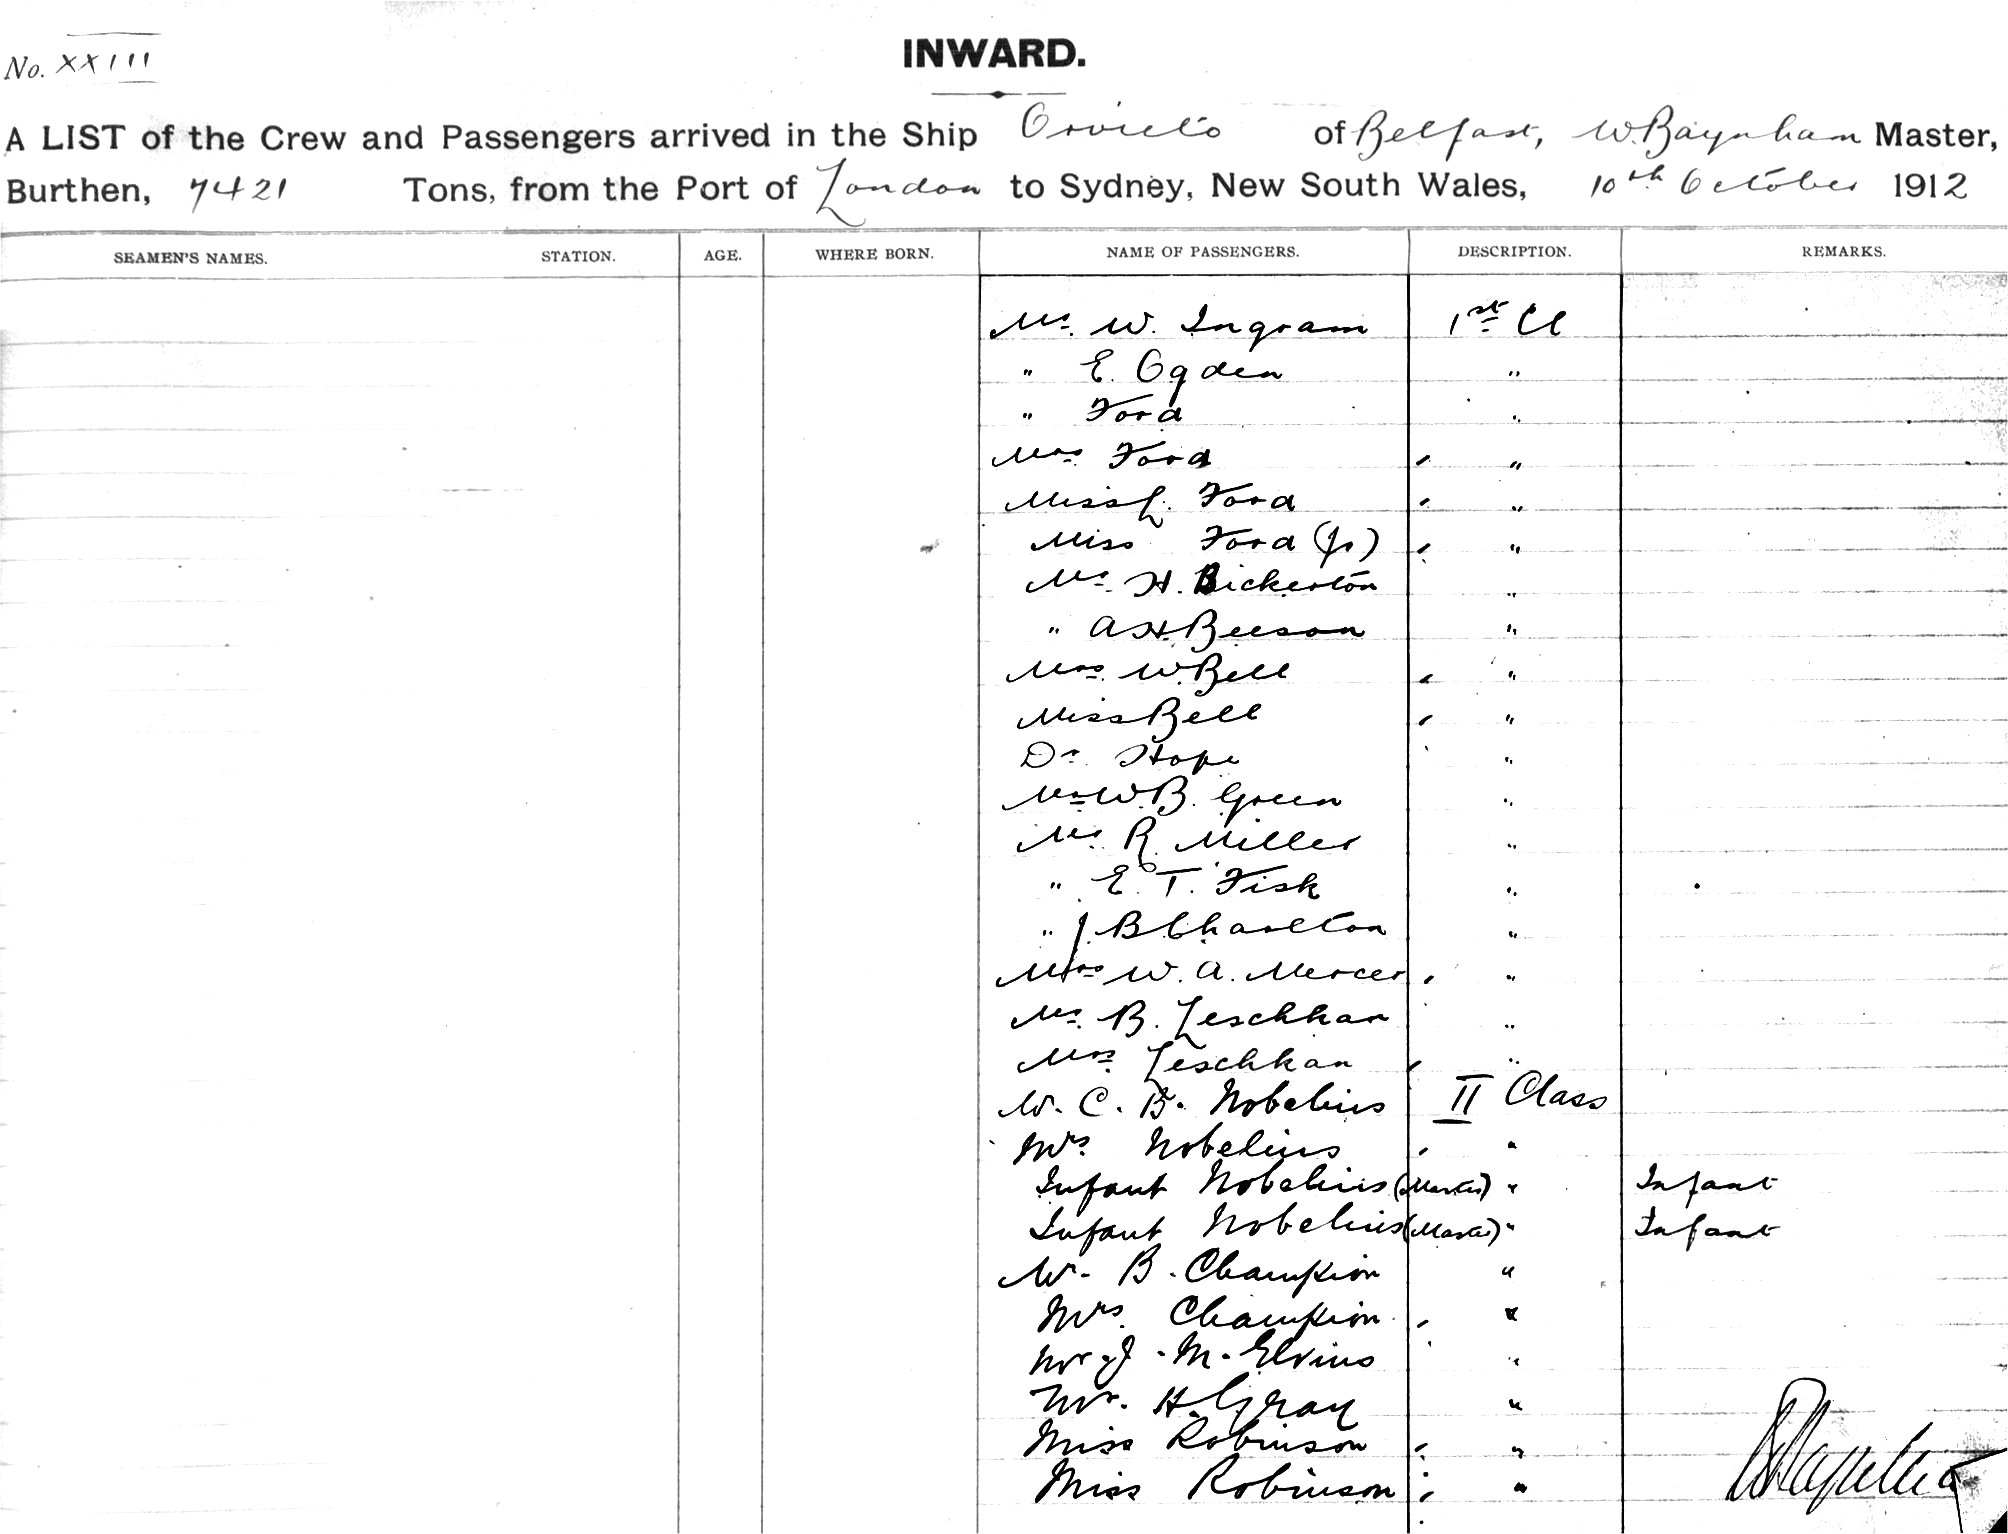 INWARD.
No. XXIII
A LIST of the Crew and Passengers arrived in the Ship Orvieto of Belfast, W. Baynham Master,
Burthen, 7421 Tons, from the Port of London to Sydney, New South Wales, 10th October 1912
SEAMEN'S NAMES. STATION. AGE. WHERE BORN. NAME OF PASSENGERS. DESCRIPTION. REMARKS.
Mr. W. Ingram 1st Cl
" E. Ogden "
" Ford "
Mrs Ford "
Miss L. Ford "
Miss Ford (Jr) "
Mr. H. Bickerton "
" A H. Beeson "
Mrs. W. Bell "
Miss Bell "
Dr. Hope "
Mr W. B. Green "
Mr. R. Miller "
" E. T. Fisk "
" J. B Charlton "
Mrs W. A. Mercer "
Mr. B. Leschkan "
Mrs. Leschkan "
Mr. C. B. Nobelius II Class
Mrs. Nobelius "
Infant Nobelius (Master) " Infant
Infant Nobelius (Master) " Infant
Mr. B. Champion "
Mrs. Champion "
Mr J. M. Elvins "
Mr. H. Gray "
Miss Robinson "
Miss Robinson "